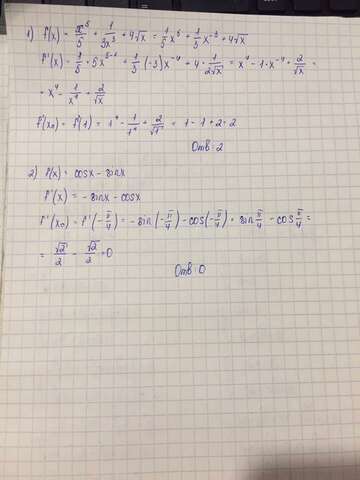 1) f(x) = x⁵/5 + 1/3x³ + 4√x = 1/5 x⁵ + 1/3 x⁻³ + 4√x
f'(x) = 1/5 · 5x⁵⁻¹ + 1/3 (-3) x⁻⁴ + 4 · 1/2√x = x⁴ - 1 · x⁻⁴ + 2/√x =
= x⁴ - 1/x⁴ + 2/√x
f'(x₀) = f'(1) = 1⁴ - 1/1⁴ + 2/√1 = 1 - 1 + 2 = 2
Отв: 2
2) f(x) = cosx - sinx
f'(x) = - sinx - cosx
f'(x₀) = f'(-π/4) = - sin(-π/4) - cos(-π/4) = sin π/4 - cos π/4 =
= √2/2 - √2/2 = 0
Отв: 0